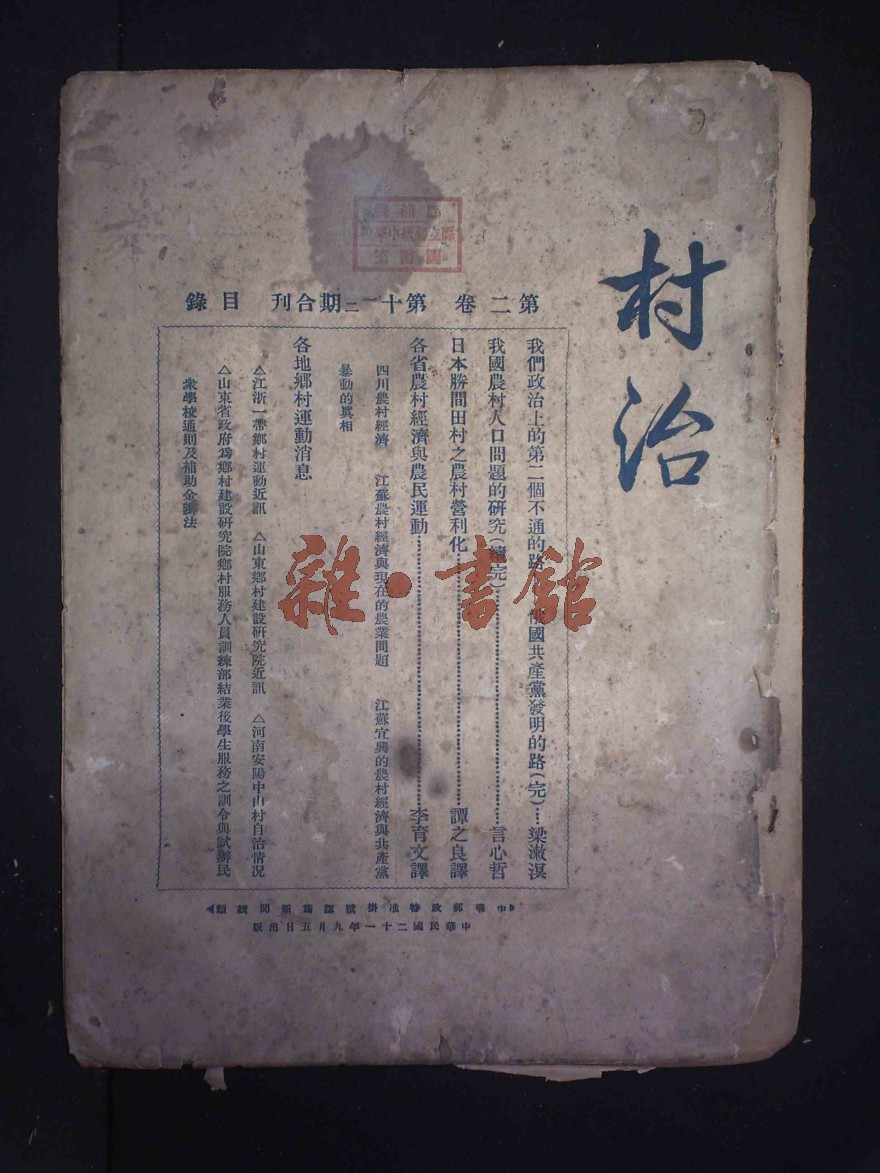 村治
第二卷 第十一二期合刊 目錄
我們政治上的第二個不通的路 俄國共產黨發明的路(完)…梁漱溟
我國農村人口問題的研究(續完)…言心哲
日本勝間田村之農村營利化…譚之良譯
各省農村經濟與農民運動…李育文譯
四川農村經濟 江蘇農村經濟與現在的農業問題 江蘇宜興的農村經濟與共產黨
暴動的真相
各地鄉村運動消息
△江浙一帶鄉村運動近訊 △山東鄉村建設研究院近訊 △河南安陽中山村自治情况
△山東省政府為鄉村建設研究院鄉村服務人員訓練部結業後學生服務之訓令與試辦民
衆學校通則及補助金辦法
中華郵政特准掛號認為新聞紙類
中華民國二十一年九月五日出版
圖書室
雜·書館